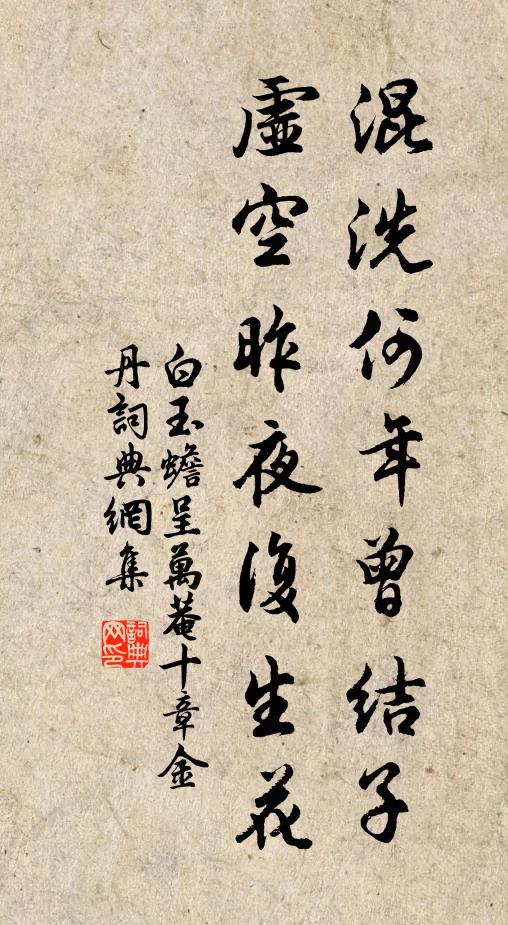 混洗何年曾結子
虛空昨夜復生花
白玉蟾呈萬菴十章金
丹詞典網集
詞典網印